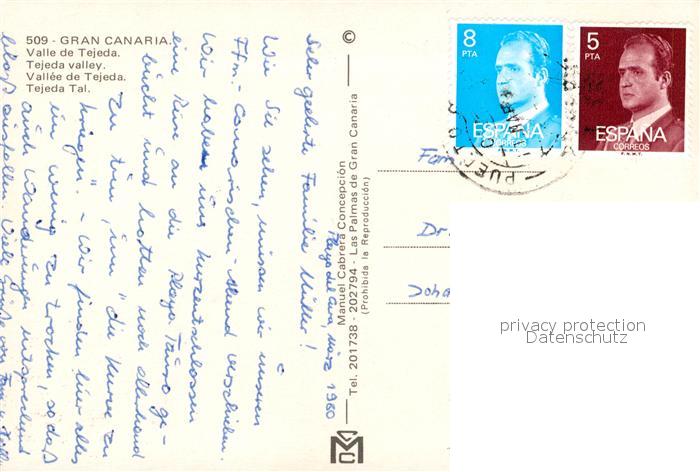 509 - GRAN CANARIA.
Valle de Tejeda.
Tejeda valley.
Vallée de Tejeda.
Tejeda Tal.
©
Manuel Cabrera Concepción
Tel. 201738 - 202794 - Las Palmas de Gran Canaria
(Prohibida la Reproducción)
8
PTA
ESPAÑA
CORREOS
F.N.M.T.
5
PTA
ESPAÑA
CORREOS
F.N.M.T.
PUERTO
Playa del Cura, März 1980
Sehr geehrte Familie Müller!
Wie Sie sehen, müssen wir unseren
Ffm.-Canarischen-Abend verschieben.
Wir haben uns kurzentschlossen
eine Reise an die Playa Tauro ge-
bucht und hatten noch allerhand
zu tun, um "die Kurve zu
kriegen". - Wir finden hier alles
ein wenig zu trocken, sodaß
auch Wanderungen entsprechend
blaß ausfallen. Viele Grüße von
Fam
Dr.
Joha
privacy protection
Datenschutz